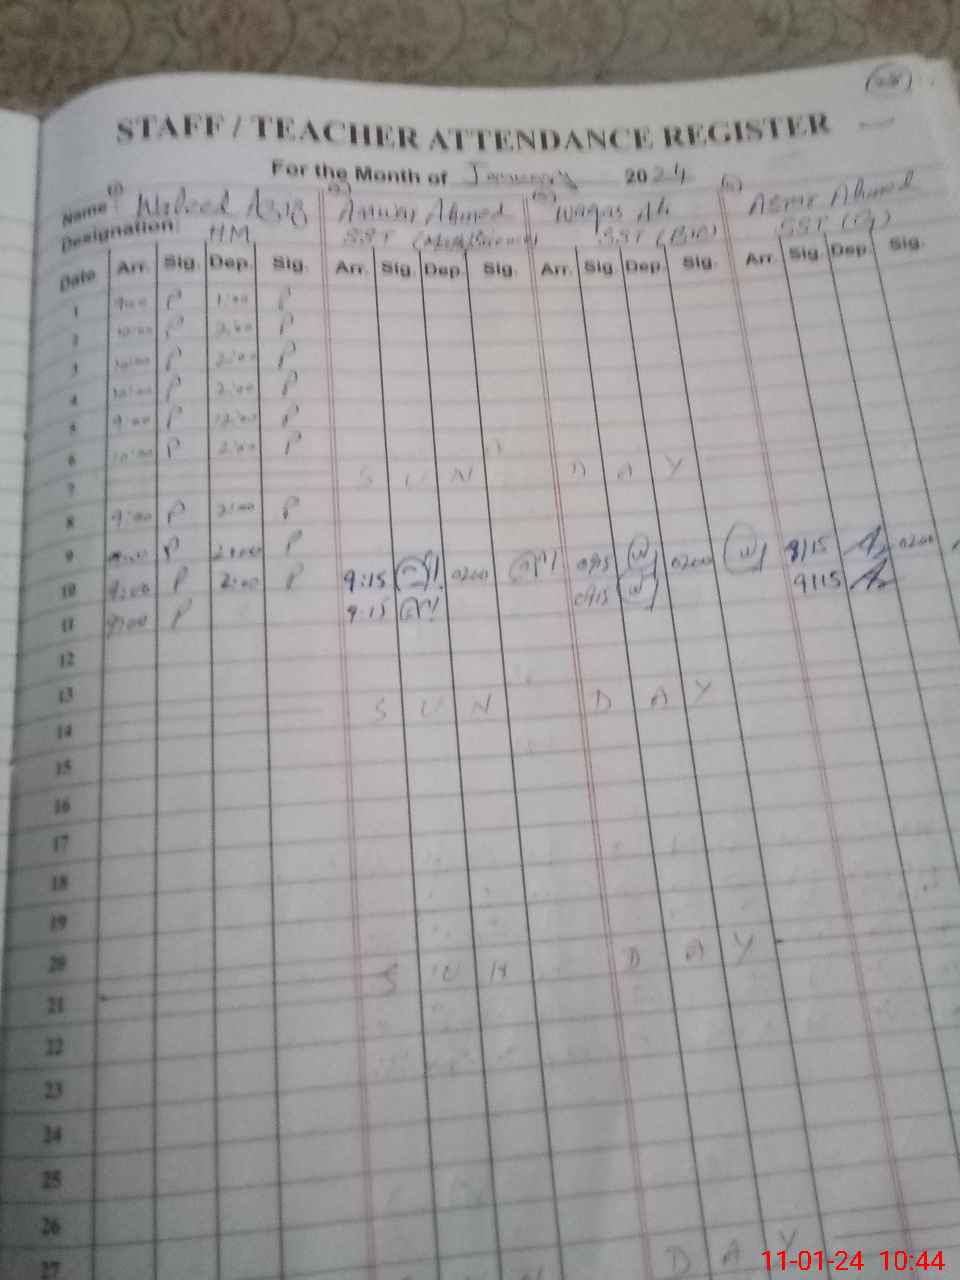 STAFF / TEACHER ATTENDANCE REGISTER
For the Month of January 2024
Name Waleed Aziz Anwar Ahmed Waqas Ali Ahmed
Designation: HM SST (Math/Science) SST (BIO) SST
Date Arr. Sig. Dep. Sig. Arr. Sig. Dep. Sig. Arr. Sig. Dep. Sig. Arr. Sig. Dep. Sig.
1 9:00 P 1:00 P
2 10:00 P 2:00 P
3 10:00 P 2:00 P
4 10:00 P 2:00 P
5 9:00 P 12:00 P
6 10:00 P 2:00 P
7 S U N D A Y
8 9:00 P 2:00 P
9 P P
10 9:00 P 2:00 P 9:15 0200 0915 0200 9/15 0200
11 9:00 P 9:15 0915 9/15
12
13
14 S U N D A Y
15
16
17
18
19
20
21 S U N D A Y
22
23
24
25
26
27 D A Y
11-01-24 10:44